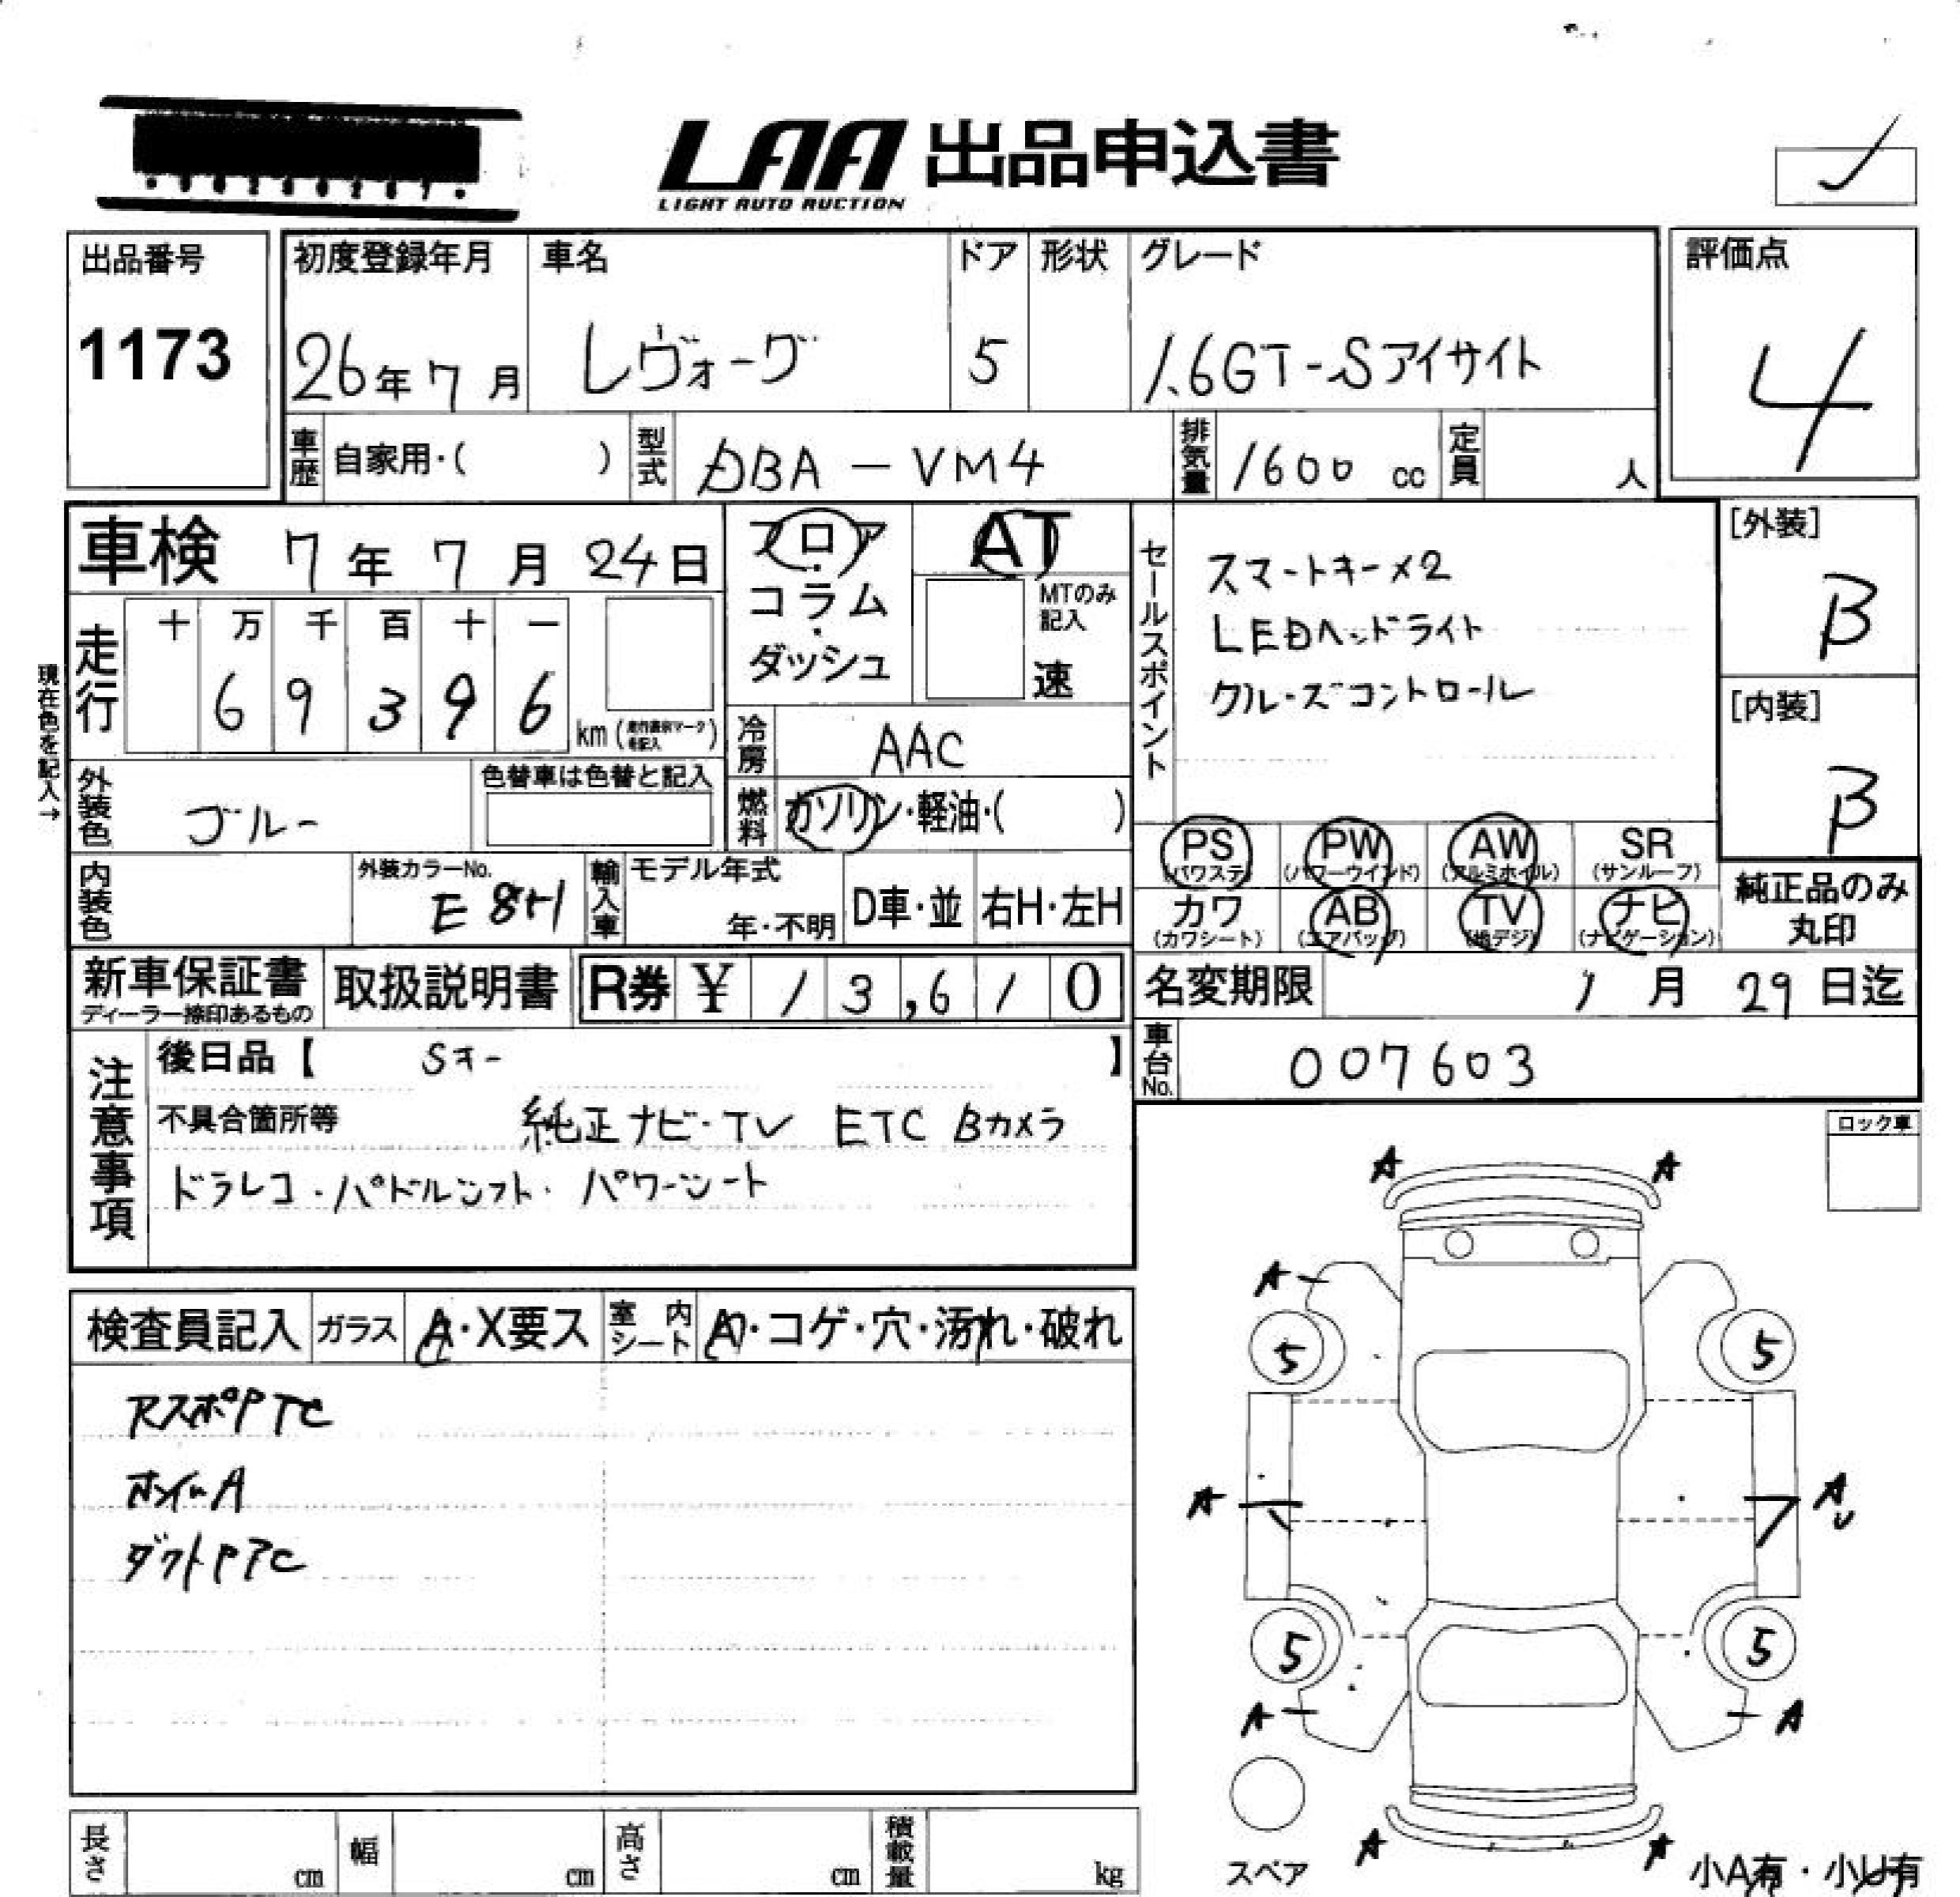 LAA 出品申込書
LIGHT AUTO AUCTION
出品番号
1173
初度登録年月
26年 7月
車名
レヴォーグ
ドア
5
形状
グレード
1.6GT-Sアイサイト
評価点
4
車歴
自家用・( )
型式
DBA - VM4
排気量
1600 cc
定員
人
車検 7年 7月 24日
フロア・コラム・ダッシュ
AT
MTのみ記入
速
セールスポイント
スマートキー×2
LEDヘッドライト
クルーズコントロール
[外装]
B
[内装]
B
現在色を記入→
走行
十 万 千 百 十 一
6 9 3 9 6
km
冷房
AAC
外装色
ブルー
色替車は色替と記入
燃料
ガソリン・軽油・( )
PS (パワステ)
PW (パワーウインド)
AW (アルミホイル)
SR (サンルーフ)
カワ (カワシート)
AB (エアバッグ)
TV (地デジ)
ナビ (ナビゲーション)
純正品のみ丸印
内装色
外装カラーNo.
E8H
輸入車
モデル年式
年・不明
D車・並
右H・左H
新車保証書
ディーラー捺印あるもの
取扱説明書
R券 ¥ 13,610
名変期限
1月 29日迄
車台No.
007603
注意事項
後日品【 Sキー 】
不具合箇所等 純正ナビ・TV ETC Bカメラ
ドラレコ・パドルシフト・パワーシート
ロック車
検査員記入
ガラス
A・X要ス
室内シート
A・コゲ・穴・汚れ・破れ
RスポPTC
ホイルA
ダクトPTC
A A
A
5 5
A A U
5 5
A A
A A
スペア
小A有・小U有
長さ cm
幅 cm
高さ cm
積載量 kg